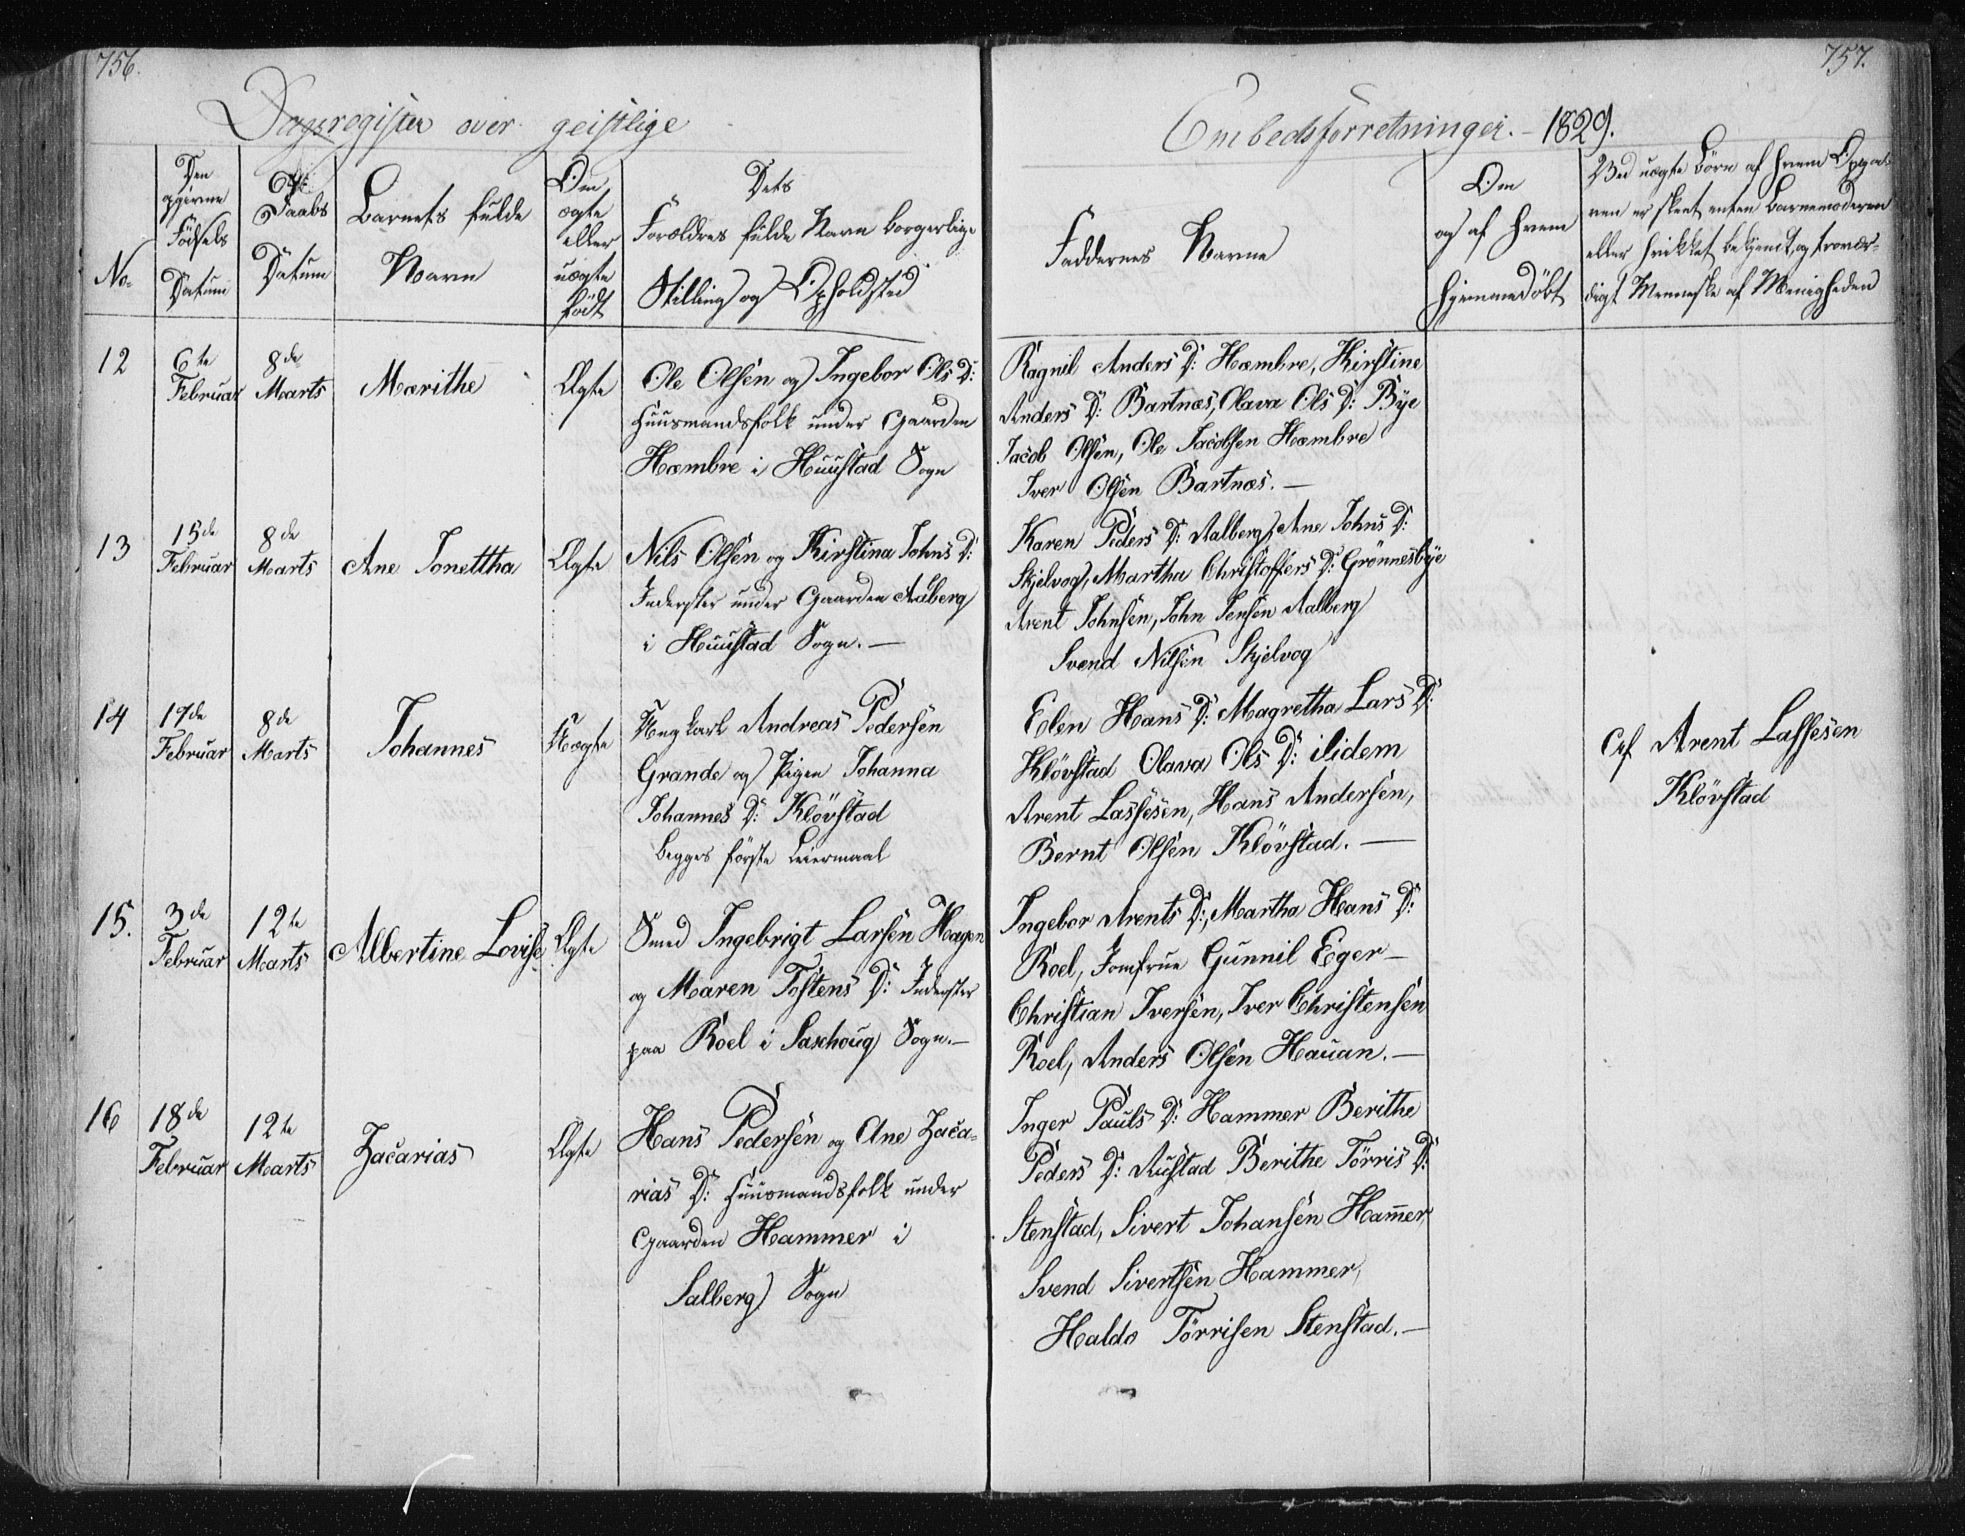 756.
Dagsregister over geistlige
No.
Den
egierne
Födsels
Datum
Daabs
Datum
Barnets fulde
Navn
Om
ægte
eller
uægte
födt
Dets
Forældres fulde Navn borgerlige
Stilling og Opholdsted
12
6te
Februar
8de
Marts
Marithe
Ægte
Ole Olsen og Ingebor Ols D:
Huusmandsfolk under Gaarden
Hæmbre i Huustad Sogn
13
15de
Februar
8de
Marts
Ane Jonettha
Ægte
Nils Olsen og Kirstina Johns D:
Inderster under Gaarden Aalberg
i Huustad Sogn. —
14
17de
Februar
8de
Marts
Johannes
Uægte
Ungkarl Andreas Pedersen
Grande og Pigen Johanna
Johannes D: Klövstad
begges förste Leiermaal
15.
3de
Februar
12te
Marts
Albertine Lovise
Ægte
Smed Ingebrigt Larsen Hagen
og Maren Tostens D: Inderster
paa Roel i Saxhoug Sogn. —
16
18de
Februar
12te
Marts
Zacarias
Ægte
Hans Pedersen og Ane Zaca-
rias D: Huusmandsfolk under
Gaarden Hammer i
Salberg Sogn
757.
Embedsforretninger. — 1829.
Faddernes Navne
Om
og af hvem
hjemmedöbt
Ved uægte Börn af hvem Opga-
ven er skeet, enten Barnemoderen
eller hvilket bekjendt, og troevær-
digt Menneske af Menigheden
Ragnil Anders D: Hæmbre, Kirstine
Anders D: Bartnæs, Olava Ols D: Bye
Jacob Olsen, Ole Jacobsen Hæmbre
Iver Olsen Bartnæs. —
Karen Peders D: Aalberg, Ane Johns D:
Skjelvog, Martha Christoffers D: Grönnesbye
Arent Johnsen, John Jensen Aalberg
Svend Nilsen Skjelvog
Elen Hans D: Magretha Lars D:
Klövstad Olava Ols D: ibidem
Arent Lassesen, Hans Andersen,
Bernt Olsen Klövstad. —
Arent Lassesen
Klövstad
Ingebor Arents D:, Martha Hans D:
Roel, Jomfrue Gunnil Eger —
Christian Iversen, Iver Christensen
Roel, Anders Olsen Hauan. —
Inger Pauls D: Hammer Berithe
Peders D: Rustad Berithe Törris D:
Stenstad, Sivert Johansen Ham̄er
Svend Sivertsen Hammer,
Haldo Törrisen Stenstad. —